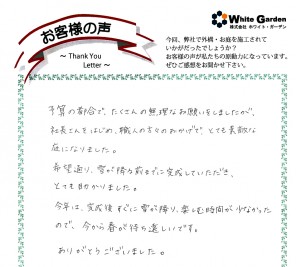 お客様の声
～ Thank You
Letter ～
White Garden
株式会社 ホワイト・ガーデン
今回、弊社で外構・お庭を施工されて
いかがだったでしょうか？
お客様の声が私たちの原動力になっています。
ぜひご感想をお聞かせ下さい。
予算の都合で、たくさんの無理なお願いをしましたが、
社長さんをはじめ、職人の方々のおかげで とても素敵な
庭になりました。
希望通り、雪が降る前までに完成していただき、
とても助かりました。
今年は、完成後すぐに雪が降り、楽しむ時間が少なかった
ので、今から春が待ち遠しいです。
ありがとうございました。